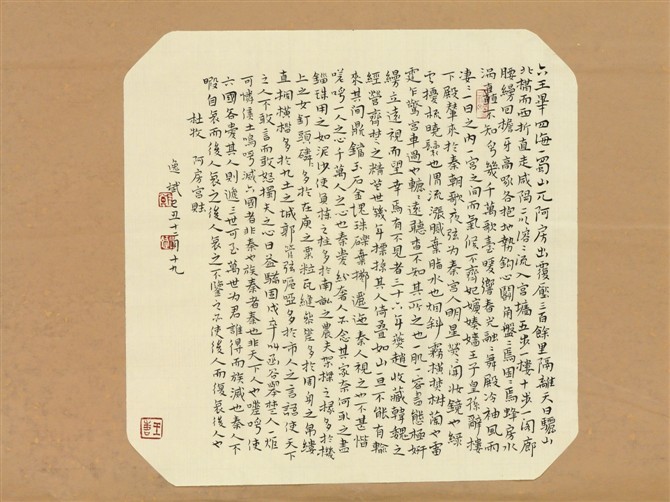 六王畢四海一蜀山兀阿房出覆壓三百餘里隔離天日驪山
北構而西折直走咸陽二川溶〻流入宮墻五步一樓十步一閣廊
腰縵回檐牙高啄各抱地勢鈎心鬭角盤〻焉囷〻焉蜂房水
渦矗不知乎幾千萬歌臺暖響春光融〻舞殿冷袖風雨
凄〻一日之內一宮之間而氣候不齊妃嬪媵嬙王子皇孫辭樓
下殿輦來於秦朝歌夜弦為秦宮人明星熒〻開妝鏡也綠
雲擾〻梳曉鬟也渭流漲膩棄脂水也烟斜霧橫焚椒蘭也雷
霆乍驚宮車過也轆〻遠聽杳不知其所之也一肌一容盡態極妍
縵立遠視而望幸焉有不見者三十六年燕趙收藏韓魏之
經營齊楚之精英幾世幾年摽掠其人倚疊如山一旦不能有輸
來其間鼎鐺玉石金塊珠礫棄擲邐迤秦人視之亦不甚惜
嗟呼一人之心千萬人之心也秦愛紛奢人亦念其家奈何取之盡
錙珠用之如泥沙使負棟之柱多於南畝之農夫架樑之椽多於機
上之女釘頭磷〻多於在庾之粟粒瓦縫參差多於周身之帛縷
直欄橫檻多於九土之城郭管弦嘔啞多於市人之言語使天下
之人不敢言而敢怒獨夫之心日益驕固戍卒叫函谷舉楚人一炬
可憐焦土嗚呼滅六國者非秦也族秦者秦也非天下人也嗟呼使
六國各愛其人則遞三世可至萬世為君誰得而族滅也秦人不
暇自哀而後人哀之後人哀之不鑒之亦使後人而復哀後人也
杜牧 阿房宮賦
逸斌己丑十二月十九